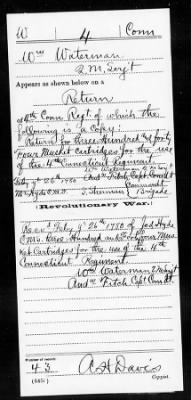 W 4 Conn
Wm Waterman
Q.M. Serjt
Appears as shown below on a
Return
of 4th Conn. Regt. of which the
following is a copy:
Return for three Hundred and forty
four Musket Cartridges for the use
of the 4th Connecticut Regiment.
Wm Waterman
July 26th 1780 Andw Fitch Capt Comdt
Mr Hyde C.M.S. Commandt
Brigade
Revolutionary War.
Recvd July 26th 1780 of Jed Hyde
CMS three Hundred and forty four Mus
ket Cartridges for the use of the 4th
Connecticut Regiment
Wm Waterman
Andw Fitch Capt Comdt.
Number of record:
43
A H Davis
Copyist.